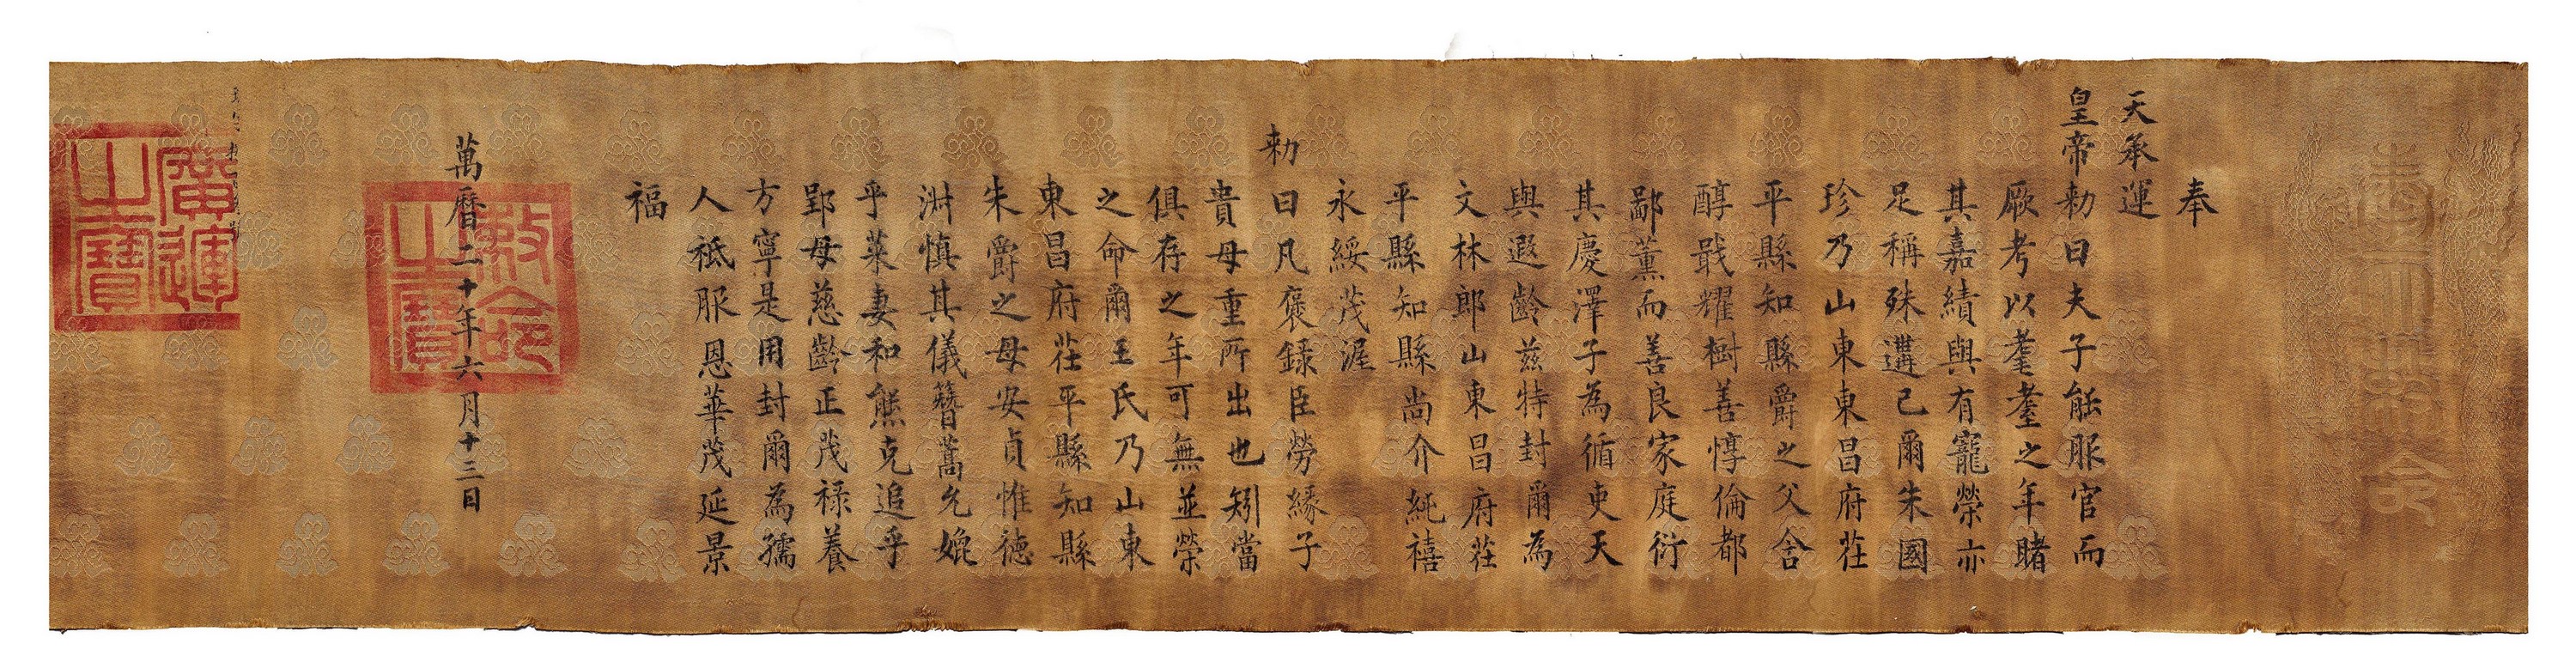 奉
天承運
皇帝勑曰夫子能服官而
厥考以耄耋之年睹
其嘉績與有寵榮亦
足稱殊遘已爾朱國
珍乃山東東昌府茌
平縣知縣爵之父含
醇戢耀樹善惇倫都
鄙薰而善良家庭衍
其慶澤子為循吏天
與遐齡茲特封爾為
文林郎山東昌府茌
平縣知縣尚介純禧
永綏茂渥
勑
曰凡褒錄臣勞緣子
貴母重所出也矧當
俱存之年可無並榮
之命爾王氏乃山東
東昌府茌平縣知縣
朱爵之母安貞惟德
淑慎其儀簪蒿允媲
乎萊妻和熊克追乎
郢母慈齡正茂祿養
方寧是用封爾為孺
人祗服恩華茂延景
福
敕命之寶
萬曆二十年六月十三日
廣運之寶